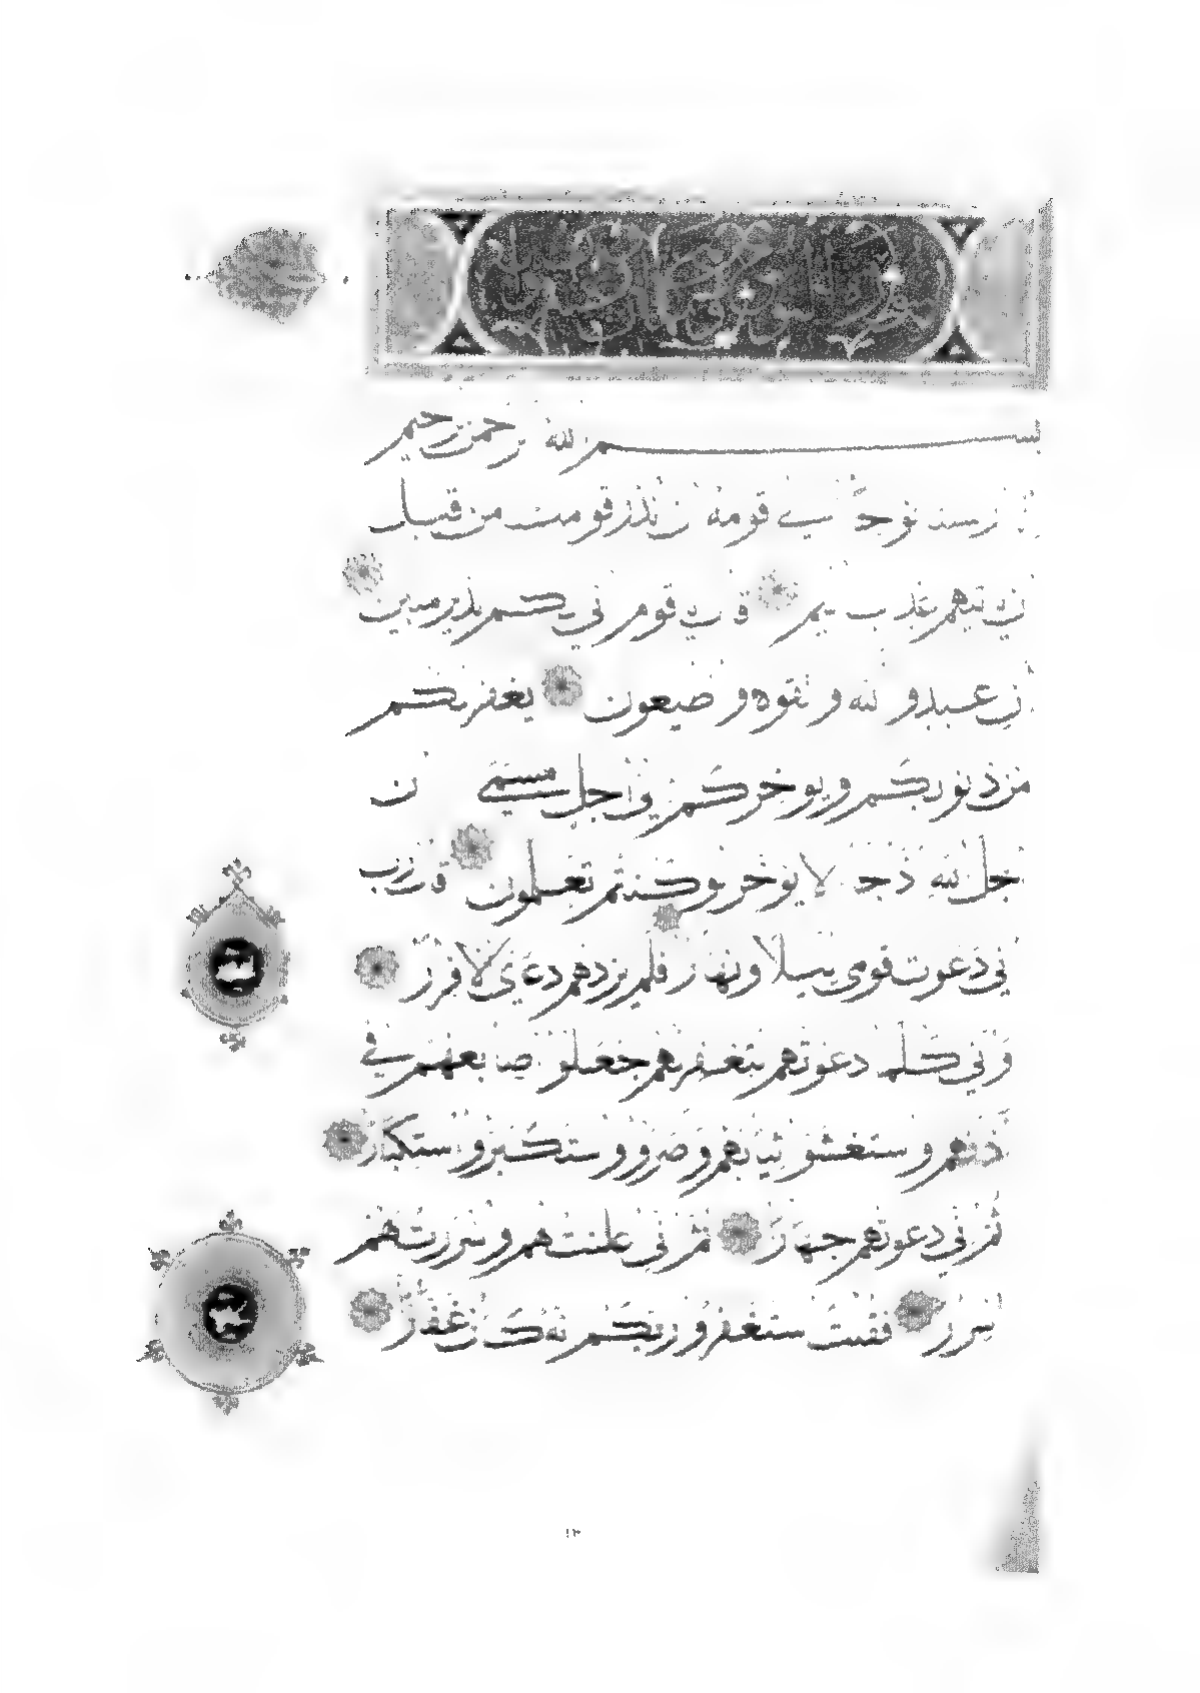 بسم الله الرحمن الرحيم
انا ارسلنا نوحا الى قومه ان انذر قومك من قبل
ان ياتيهم عذاب اليم قال يا قوم اني لكم نذير مبين
ان اعبدوا الله واتقوه واطيعون يغفر لكم
من ذنوبكم ويؤخركم الى اجل مسمى ان
اجل الله اذا جا لا يؤخر لو كنتم تعلمون قال رب
اني دعوت قومي ليلا ونهارا فلم يزدهم دعاي الا فرارا
واني كلما دعوتهم لتغفر لهم جعلوا اصابعهم في
اذانهم واستغشوا ثيابهم واصروا واستكبروا استكبارا
ثم اني دعوتهم جهارا ثم اني اعلنت لهم واسررت لهم
اسرارا فقلت استغفروا ربكم انه كان غفارا
١٢